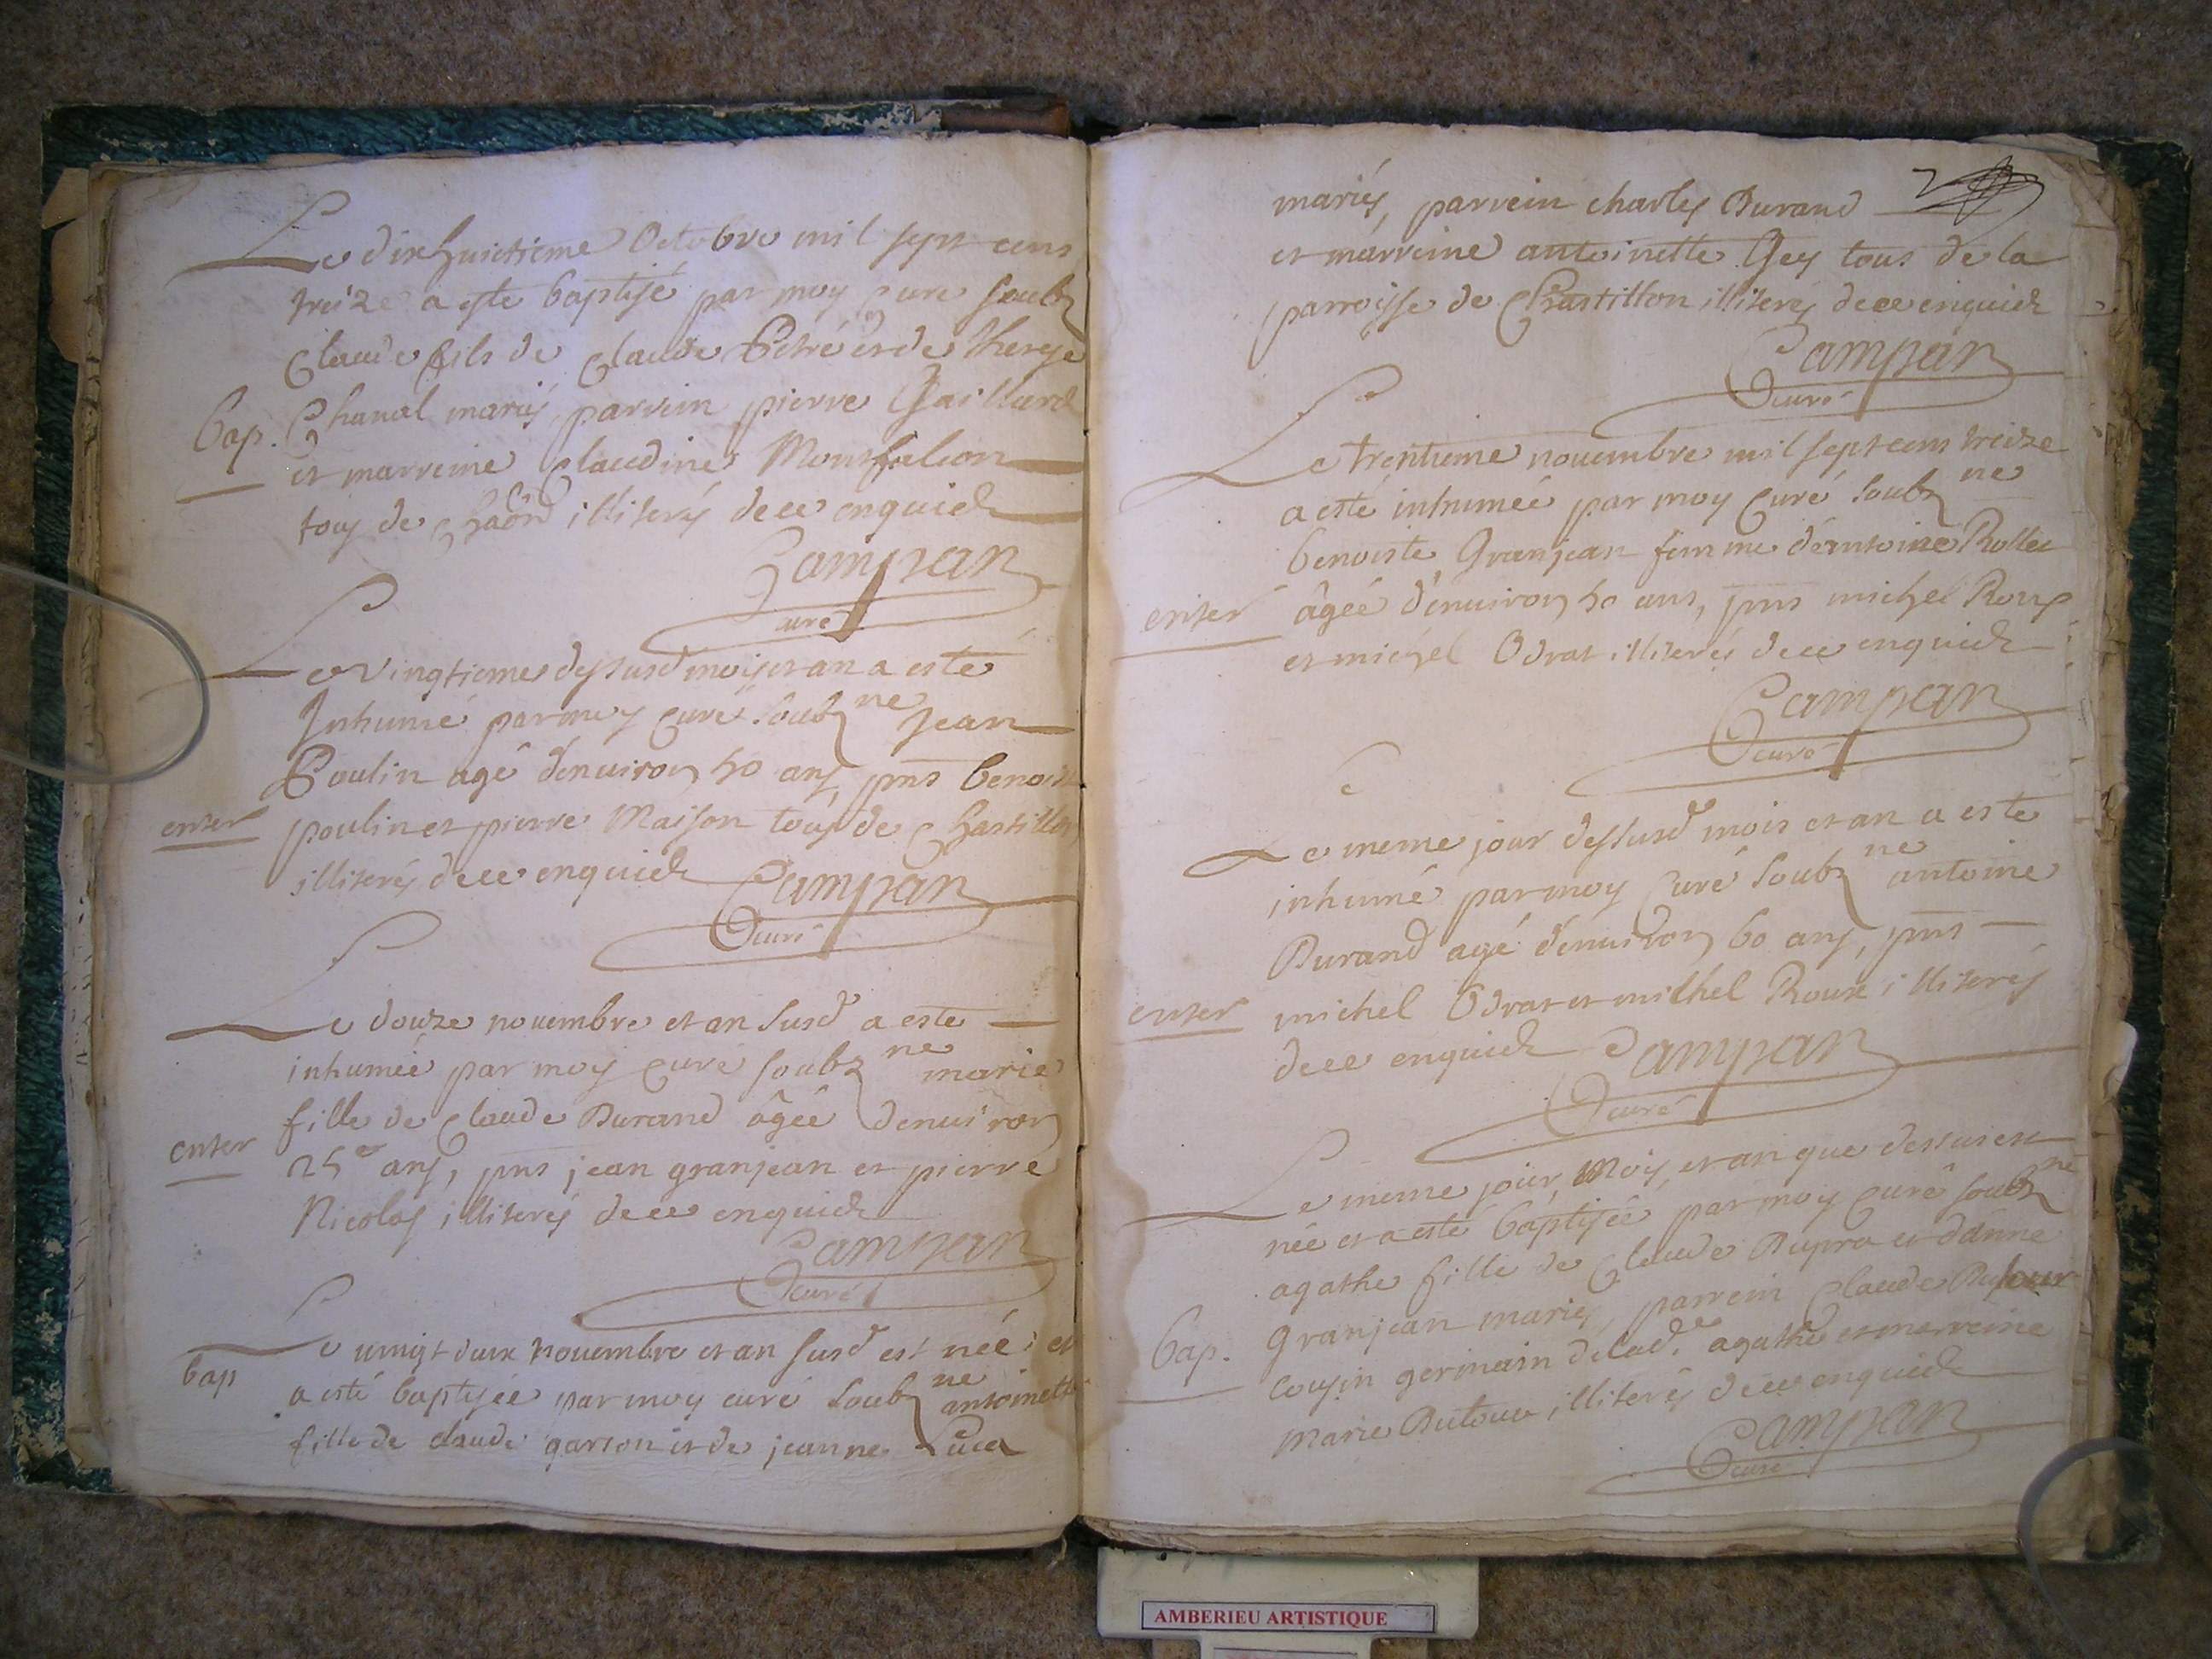 Le dixhuictieme Octobre mil sept cens
treize a esté baptisé par moy curé soubz
Claude fils de Claude Petré et de Therese
Bap. Chanal mariés, parrein pierre Gaillard
et marreine Claudine Monfalcon
tous de illiterés de ce enquis
Campan
curé
Le vingtieme dessusd mois et an a esté
Inhumé par moy curé soubz ne Jean
Poulin agé d'enuiron 50 ans, pns benoist
enter poulin et pierre Maison tous de Chastillon
illiterés de ce enquis Campan
curé
Le douze nouembre et an susd a esté
inhumée par moy curé soubz ne marie
fille de Claude Durand âgée d'enuiron
enter 25 ans, pns jean granjean et pierre
Nicolas illiterés de ce enquis
Campan
curé
Le vingt deux nouembre et an susd est née et
bap a esté baptisée par moy curé soubz ne antoinette
fille de claude garson et de jeanne Luca
mariés, parrein charles Durand
et marreine antoinette Gey tous de la
parroisse de Chastillon illiterés de ce enquis
Campan
curé
Le trentieme nouembre mil sept cens treize
a esté inhumée par moy curé soubz ne
benoiste Granjean femme d'antoine Rollet
enter âgée d'enuiron 50 ans, pns michel Roux
et michel Odrat illiterés de ce enquis
Campan
curé
Le meme jour dessusd mois et an a esté
inhumé par moy curé soubz ne antoine
Durand agé d'enuiron 60 ans, pns
enter michel Odrat et michel Roux illiterés
de ce enquis Campan
curé
Le meme jour, Mois, et an que dessus est
née et a esté baptisée par moy curé soubz né
agathe fille de Claude Dupra et d'anne
Bap. Granjean mariés, parrein Claude
cousin germain de lad. agathe et marreine
Marie Dutour illiterés de ce enquis
Campan
curé
AMBERIEU ARTISTIQUE